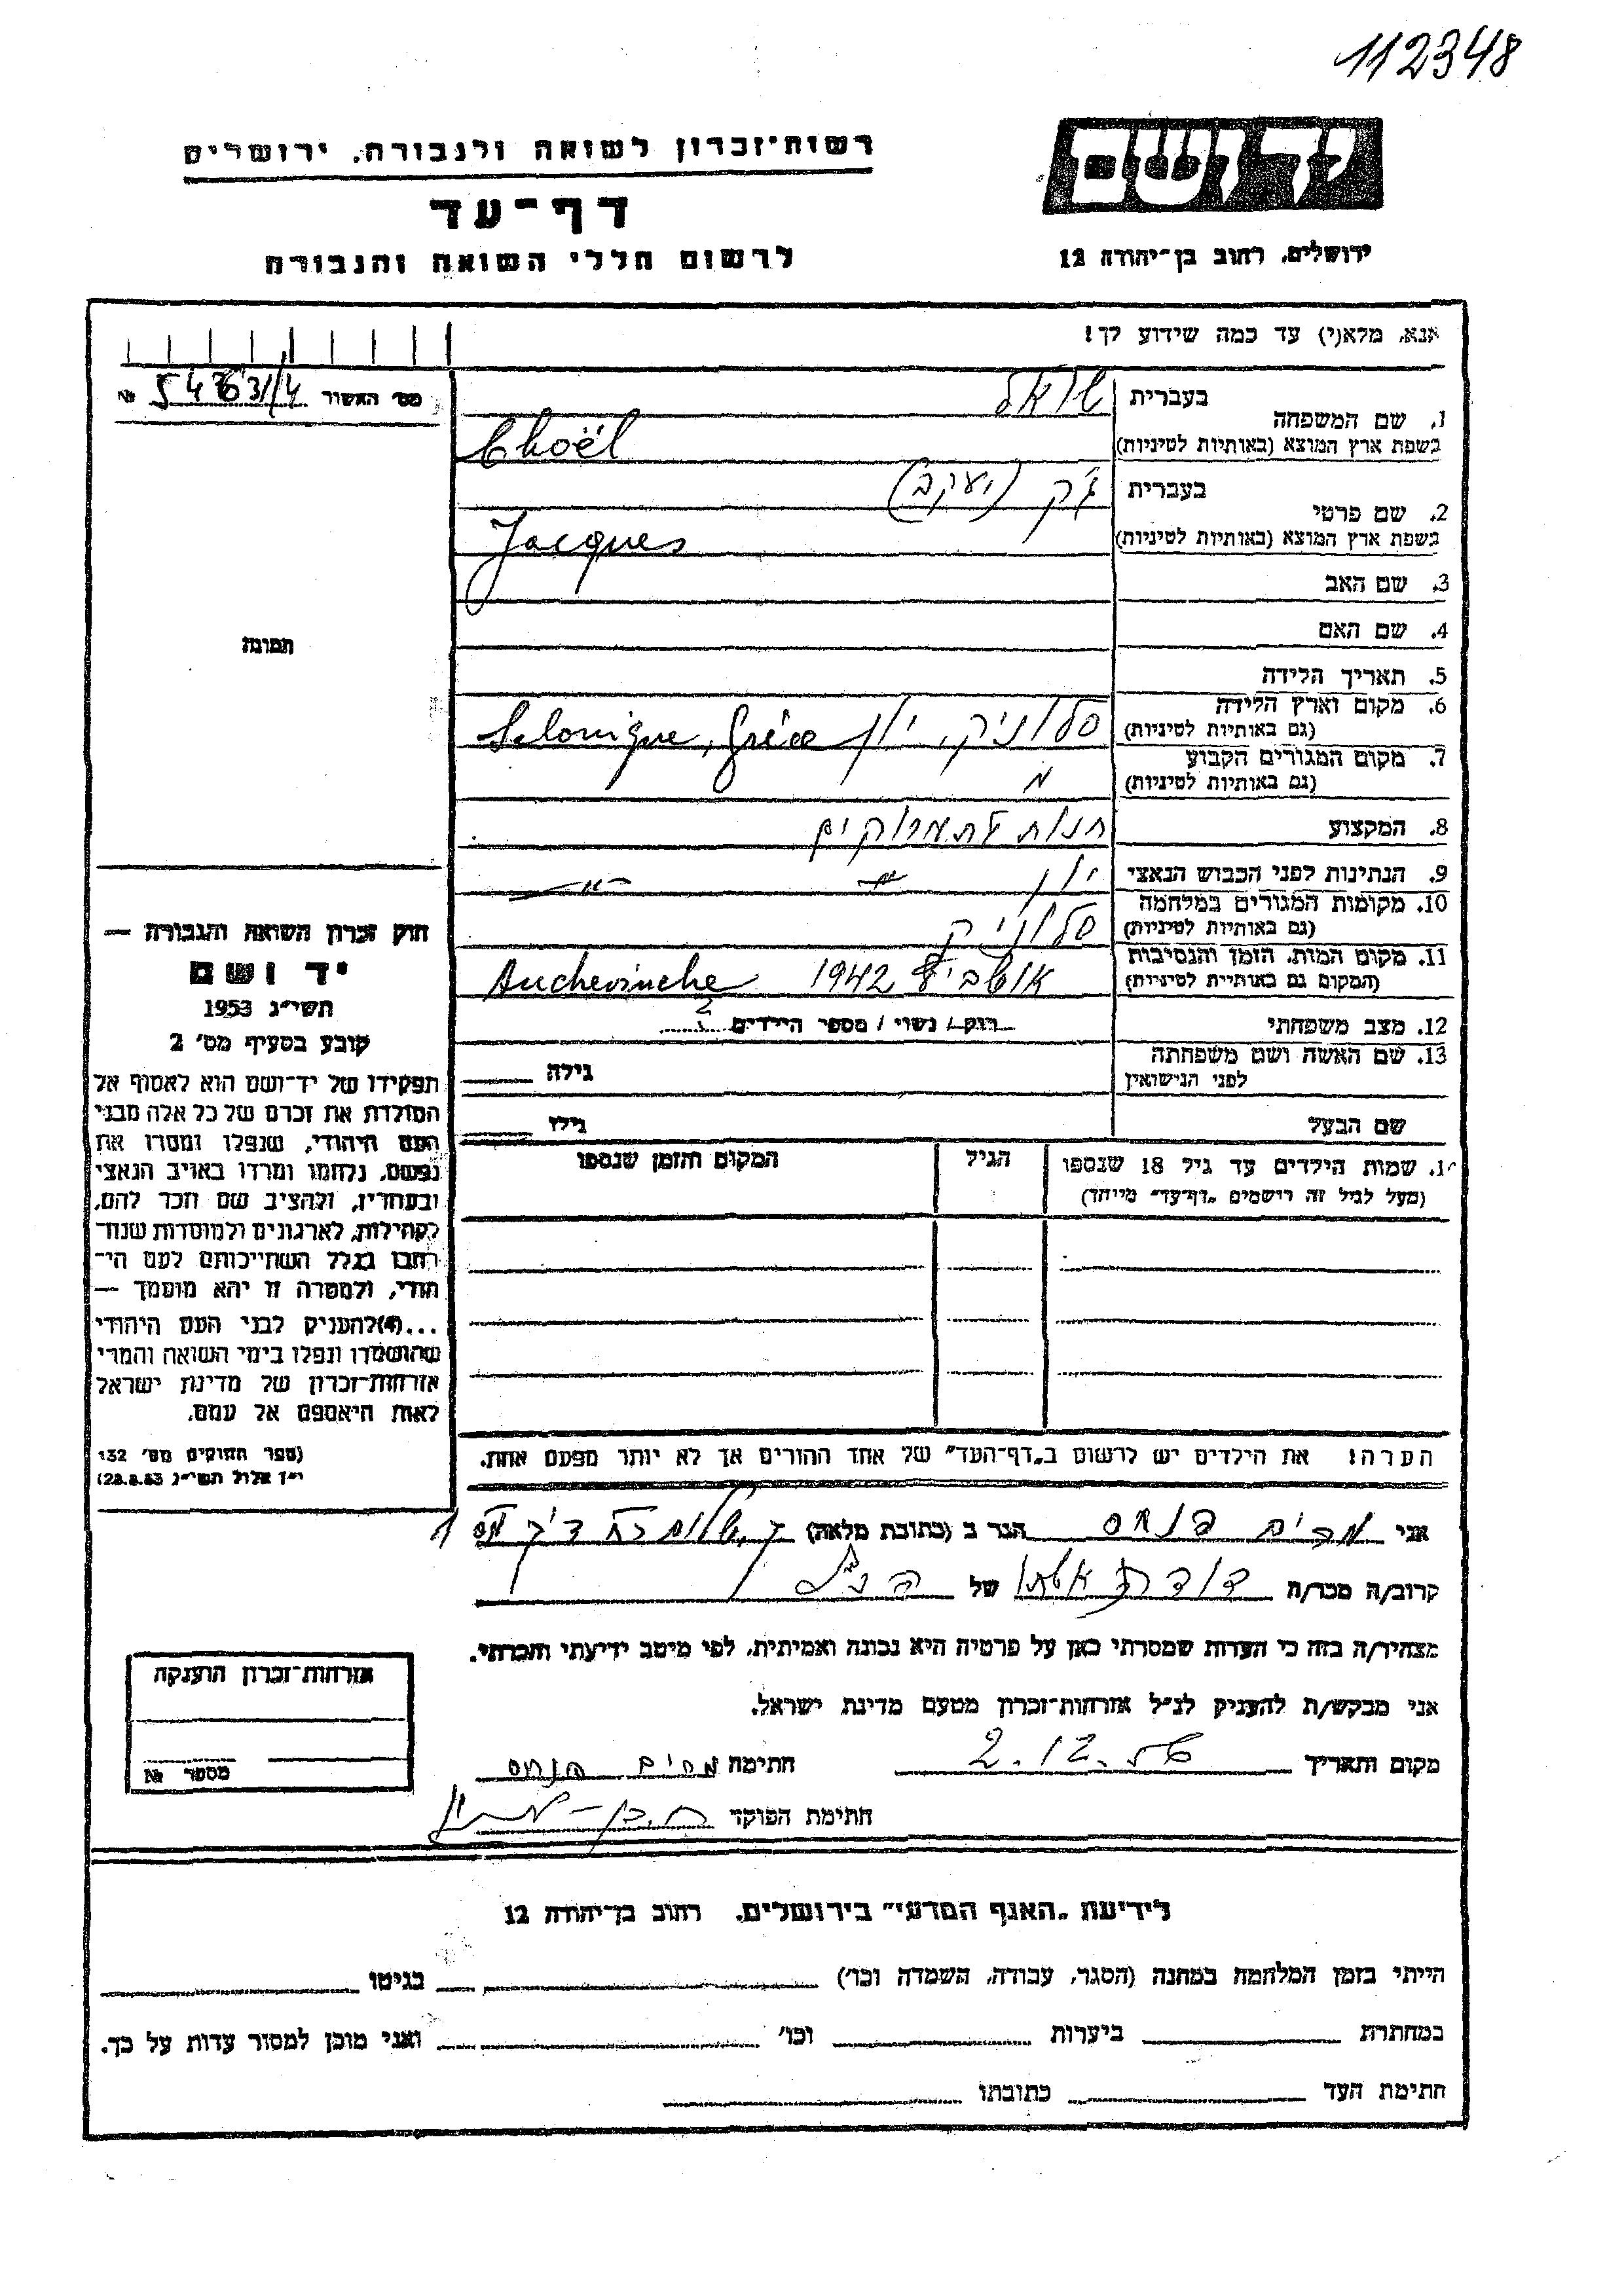 112348
יד ושם
רשות־זכרון לשואה ולגבורה, ירושלים
דף־עד
לרשום חללי השואה והגבורה
ירושלים, רחוב בן־יהודה 12
אנא, מלא(י) עד כמה שידוע לך!
מס' האשור № 54631/4
1. שם המשפחה
בעברית שואל
בשפת ארץ המוצא (באותיות לטיניות) Choël
2. שם פרטי
בעברית ג'ק (יעקב)
בשפת ארץ המוצא (באותיות לטיניות) Jacques
3. שם האב
4. שם האם
תמונה
5. תאריך הלידה
6. מקום וארץ הלידה
(גם באותיות לטיניות) סלוניק, יון Salonique, Grèce
7. מקום המגורים הקבוע
(גם באותיות לטיניות)
8. המקצוע חנות תמרוקים
9. הנתינות לפני הכבוש הנאצי יון
10. מקומות המגורים במלחמה
(גם באותיות לטיניות) סלוניק
11. מקום המות, הזמן והנסיבות
(המקום גם באותיות לטיניות) 1942 Auchevinche
12. מצב משפחתי רוק / נשוי / מספר הילדים 2
13. שם האשה ושם משפחתה
לפני הנישואין גילה
שם הבעל גילו
שמות הילדים עד גיל 18 שנספו הגיל המקום והזמן שנספו
(מעל לגיל זה רישמים „דף־עד" מייחד)
הערה! את הילדים יש לרשום ב„דף־העד" של אחד ההורים אך לא יותר מפעם אחת.
חוק זכרון השואה והגבורה —
יד ושם
תשי״ג 1953
קובע בסעיף מס' 2
תפקידו של יד־ושם הוא לאסוף אל
המולדת את זכרם של כל אלה מבני
העם היהודי, שנפלו ומסרו את
נפשם, נלחמו ומרדו באויב הנאצי
ובעוזריו, ולהציב שם וזכר להם,
לקהילות, לארגונים ולמוסדות שנח־
רבו בגלל השתייכותם לעם הי־
הודי, ולמטרה זו יהא מוסמך —
...(4)להעניק לבני העם היהודי
שהושמדו ונפלו בימי השואה והמרי
אזרחות־זכרון של מדינת ישראל
לאות היאספם אל עמם.
(ספר החוקים מס' 132
י״ז אלול תשי״ג 28.8.53)
אני מרים פנחס הגר ב (כתובת מלאה)
קרוב/ה מכר/ה דודת אשתו של הנ״ל
מצהיר/ה בזה כי העדות שמסרתי כאן על פרטיה היא נכונה ואמיתית, לפי מיטב ידיעתי והכרתי.
אני מבקש/ת להעניק לנ״ל אזרחות־זכרון מטעם מדינת ישראל.
מקום ותאריך 2.12.56 חתימה מרים פנחס
חתימת הפוקד
אזרחות־זכרון הוענקה
מספר №
לידיעת „האגף המדעי" בירושלים, רחוב בן־יהודה 12
הייתי בזמן המלחמה במחנה (הסגר, עבודה, השמדה וכו') בגיטו
במחתרת ביערות וכו' ואני מוכן למסור עדות על כך.
חתימת העד כתובתו